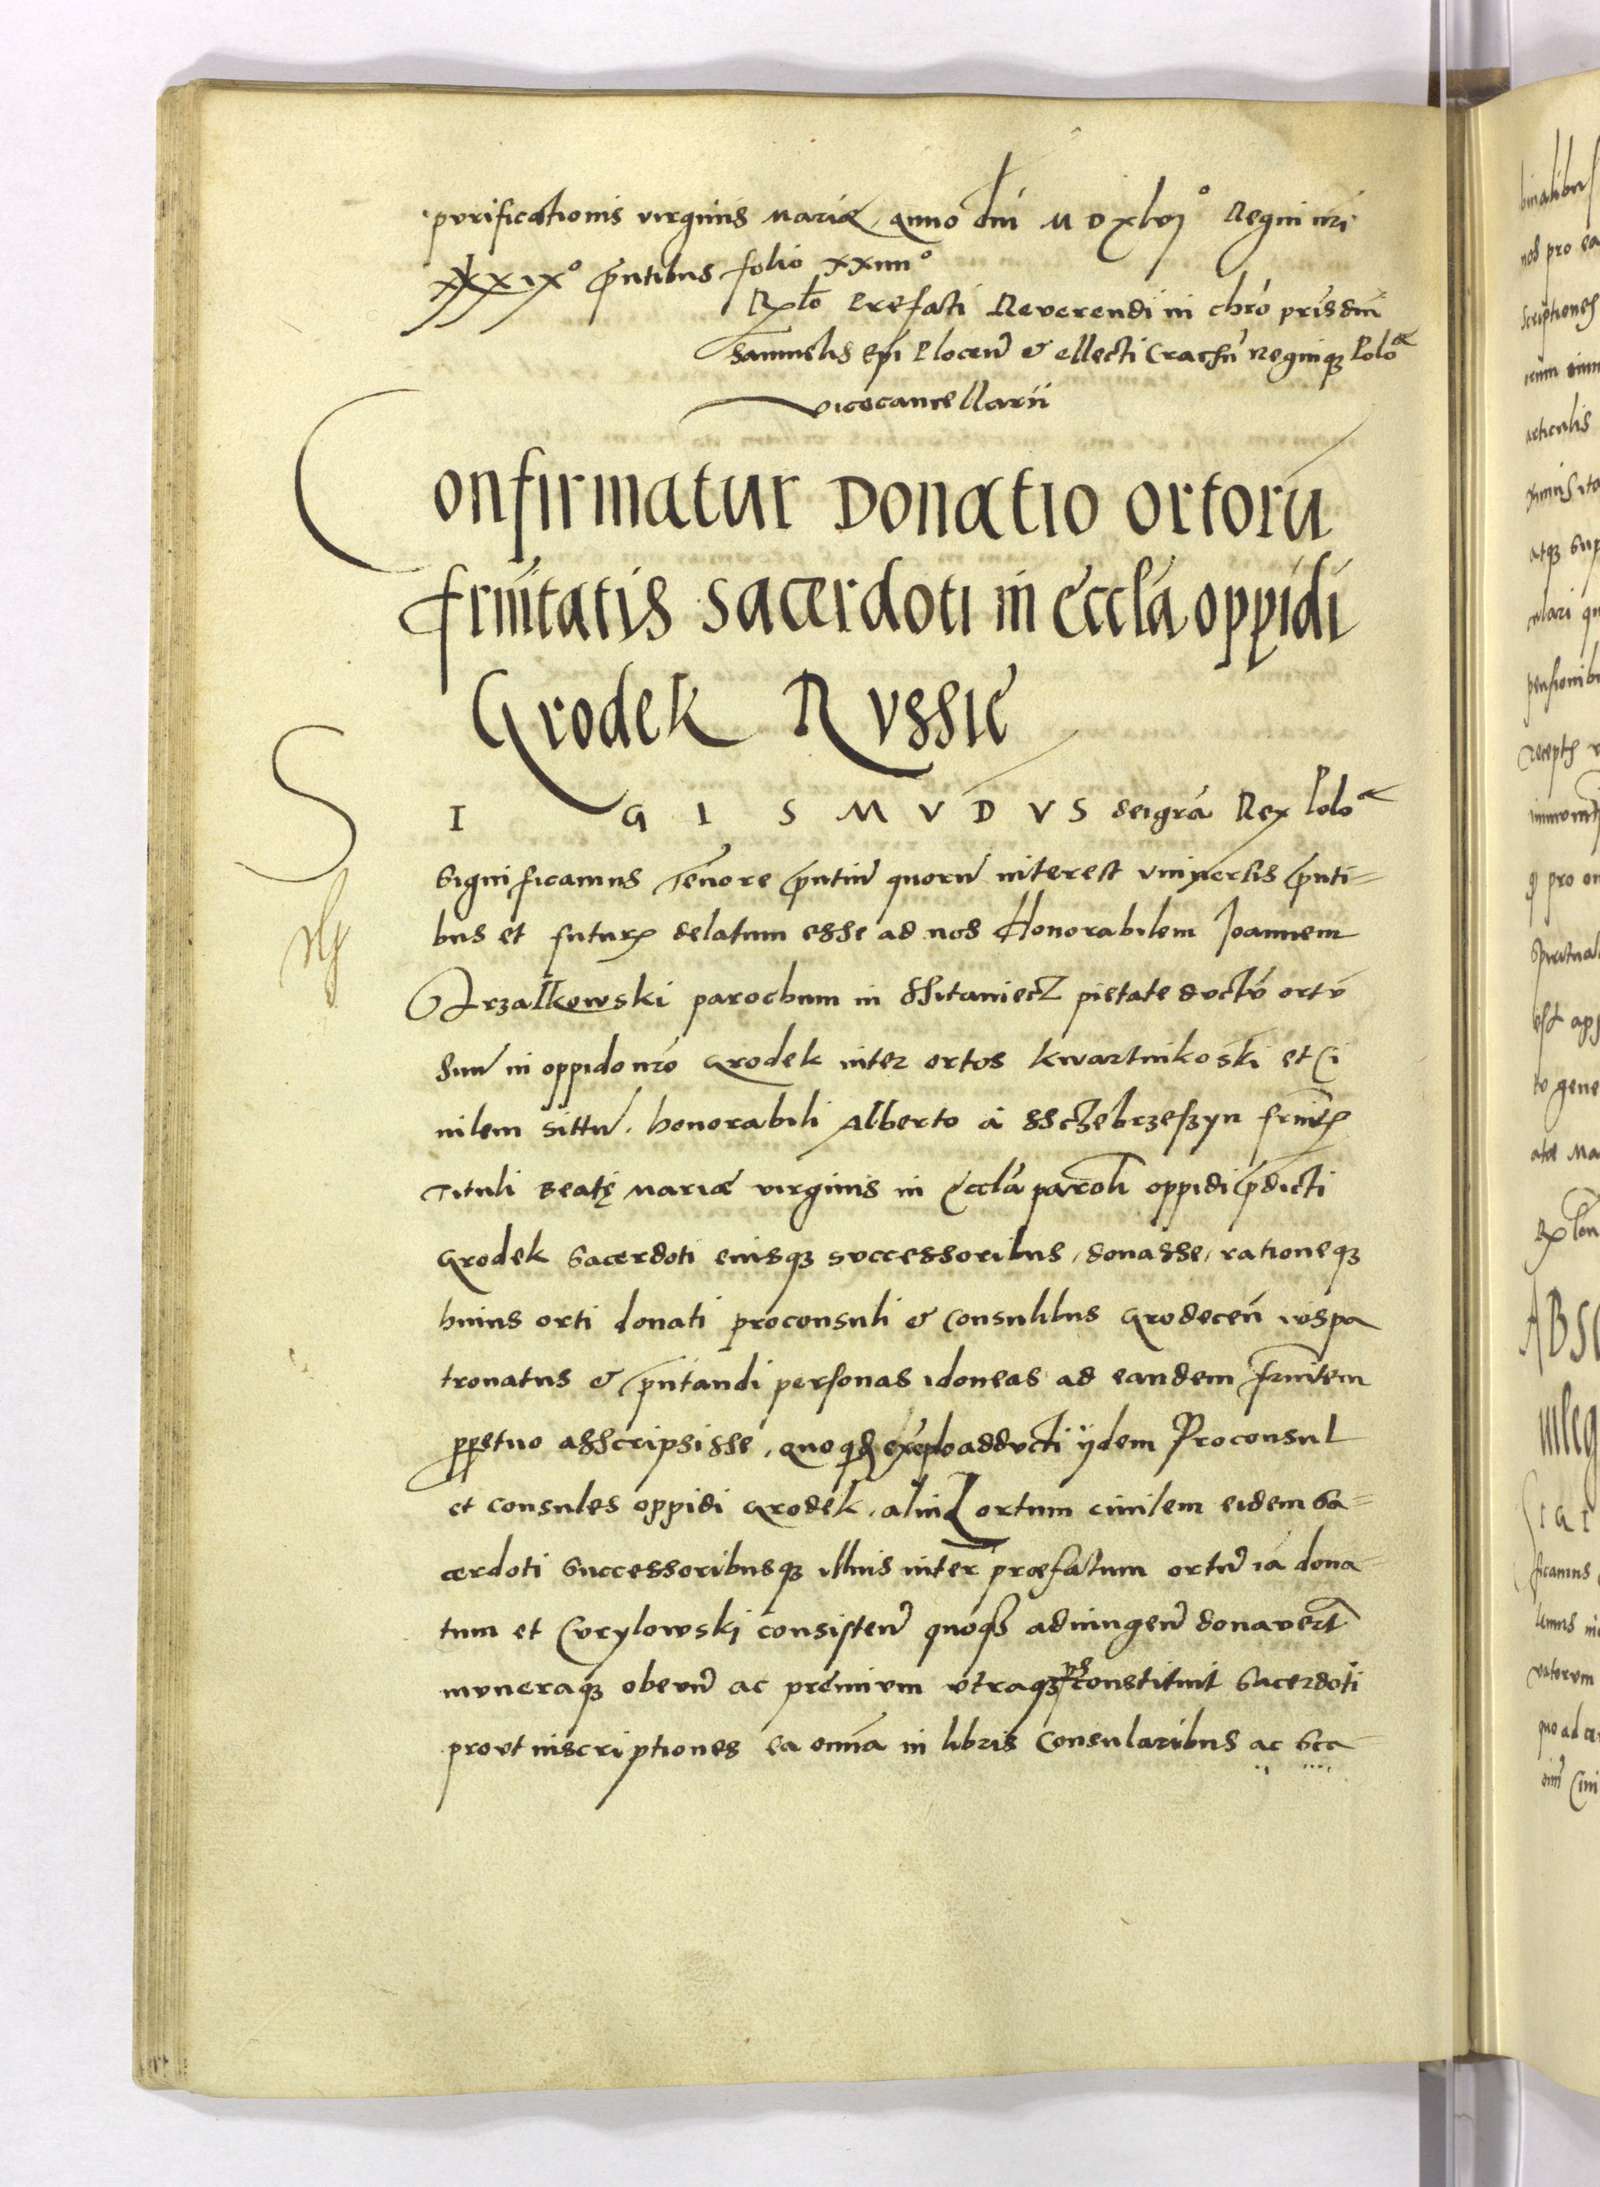 purificationis virginis Mariæ, Anno dni M D xlvi° Regni nri
xxxix° pntibus folio xxiiii°
Rlo Prefati Reverendi in chro pris dni
Samuelis Epi Plocen̄ & ellecti Cracn̄ Regniq3 Polo
vicecancellarii
Confirmatur Donatio ortorū
frnitatis sacerdoti in eccla oppidi
Grodek Russie
S I G I S M V D V S dei gra Rex Polo
Significamus Tenore pntiū quorū interest universis pnti=
bus et futur delatum esse ad nos Honorabilem Joannem
Strzalkowski parochum in parochum pietate ductū ortū
suū in oppido nro Grodek inter ortos Kwartnikoski et Ci
vilem sittū, honorabili Alberto á Sсzebrzeszyn frnit
Tituli Beatę Mariæ virginis in eccla paroli oppidi pdicti
Grodek Sacerdoti eiusq3 successoribus, donasse, rationeq3
huius orti donati proconsuli & Consulibus Grodecen̄ ius pa
tronatus & pntandi personas idoneas ad eandem frnitem
ppetuo asscripsisse, quo qd exeplo adducti ijdem Proconsul
et Consules oppidi Grodek, aliud ortum civilem eidem Sa=
cerdoti Successoribusq3 illius inter præfatum ortū iā dona=
tum et Curylowski consistenū quoqs adiungenū donavert
muneraq3 obeunū ac premium utraq3 constituit Sacerdoti
prout inscriptiones ea omnia in libris Consularibus ac Sca=